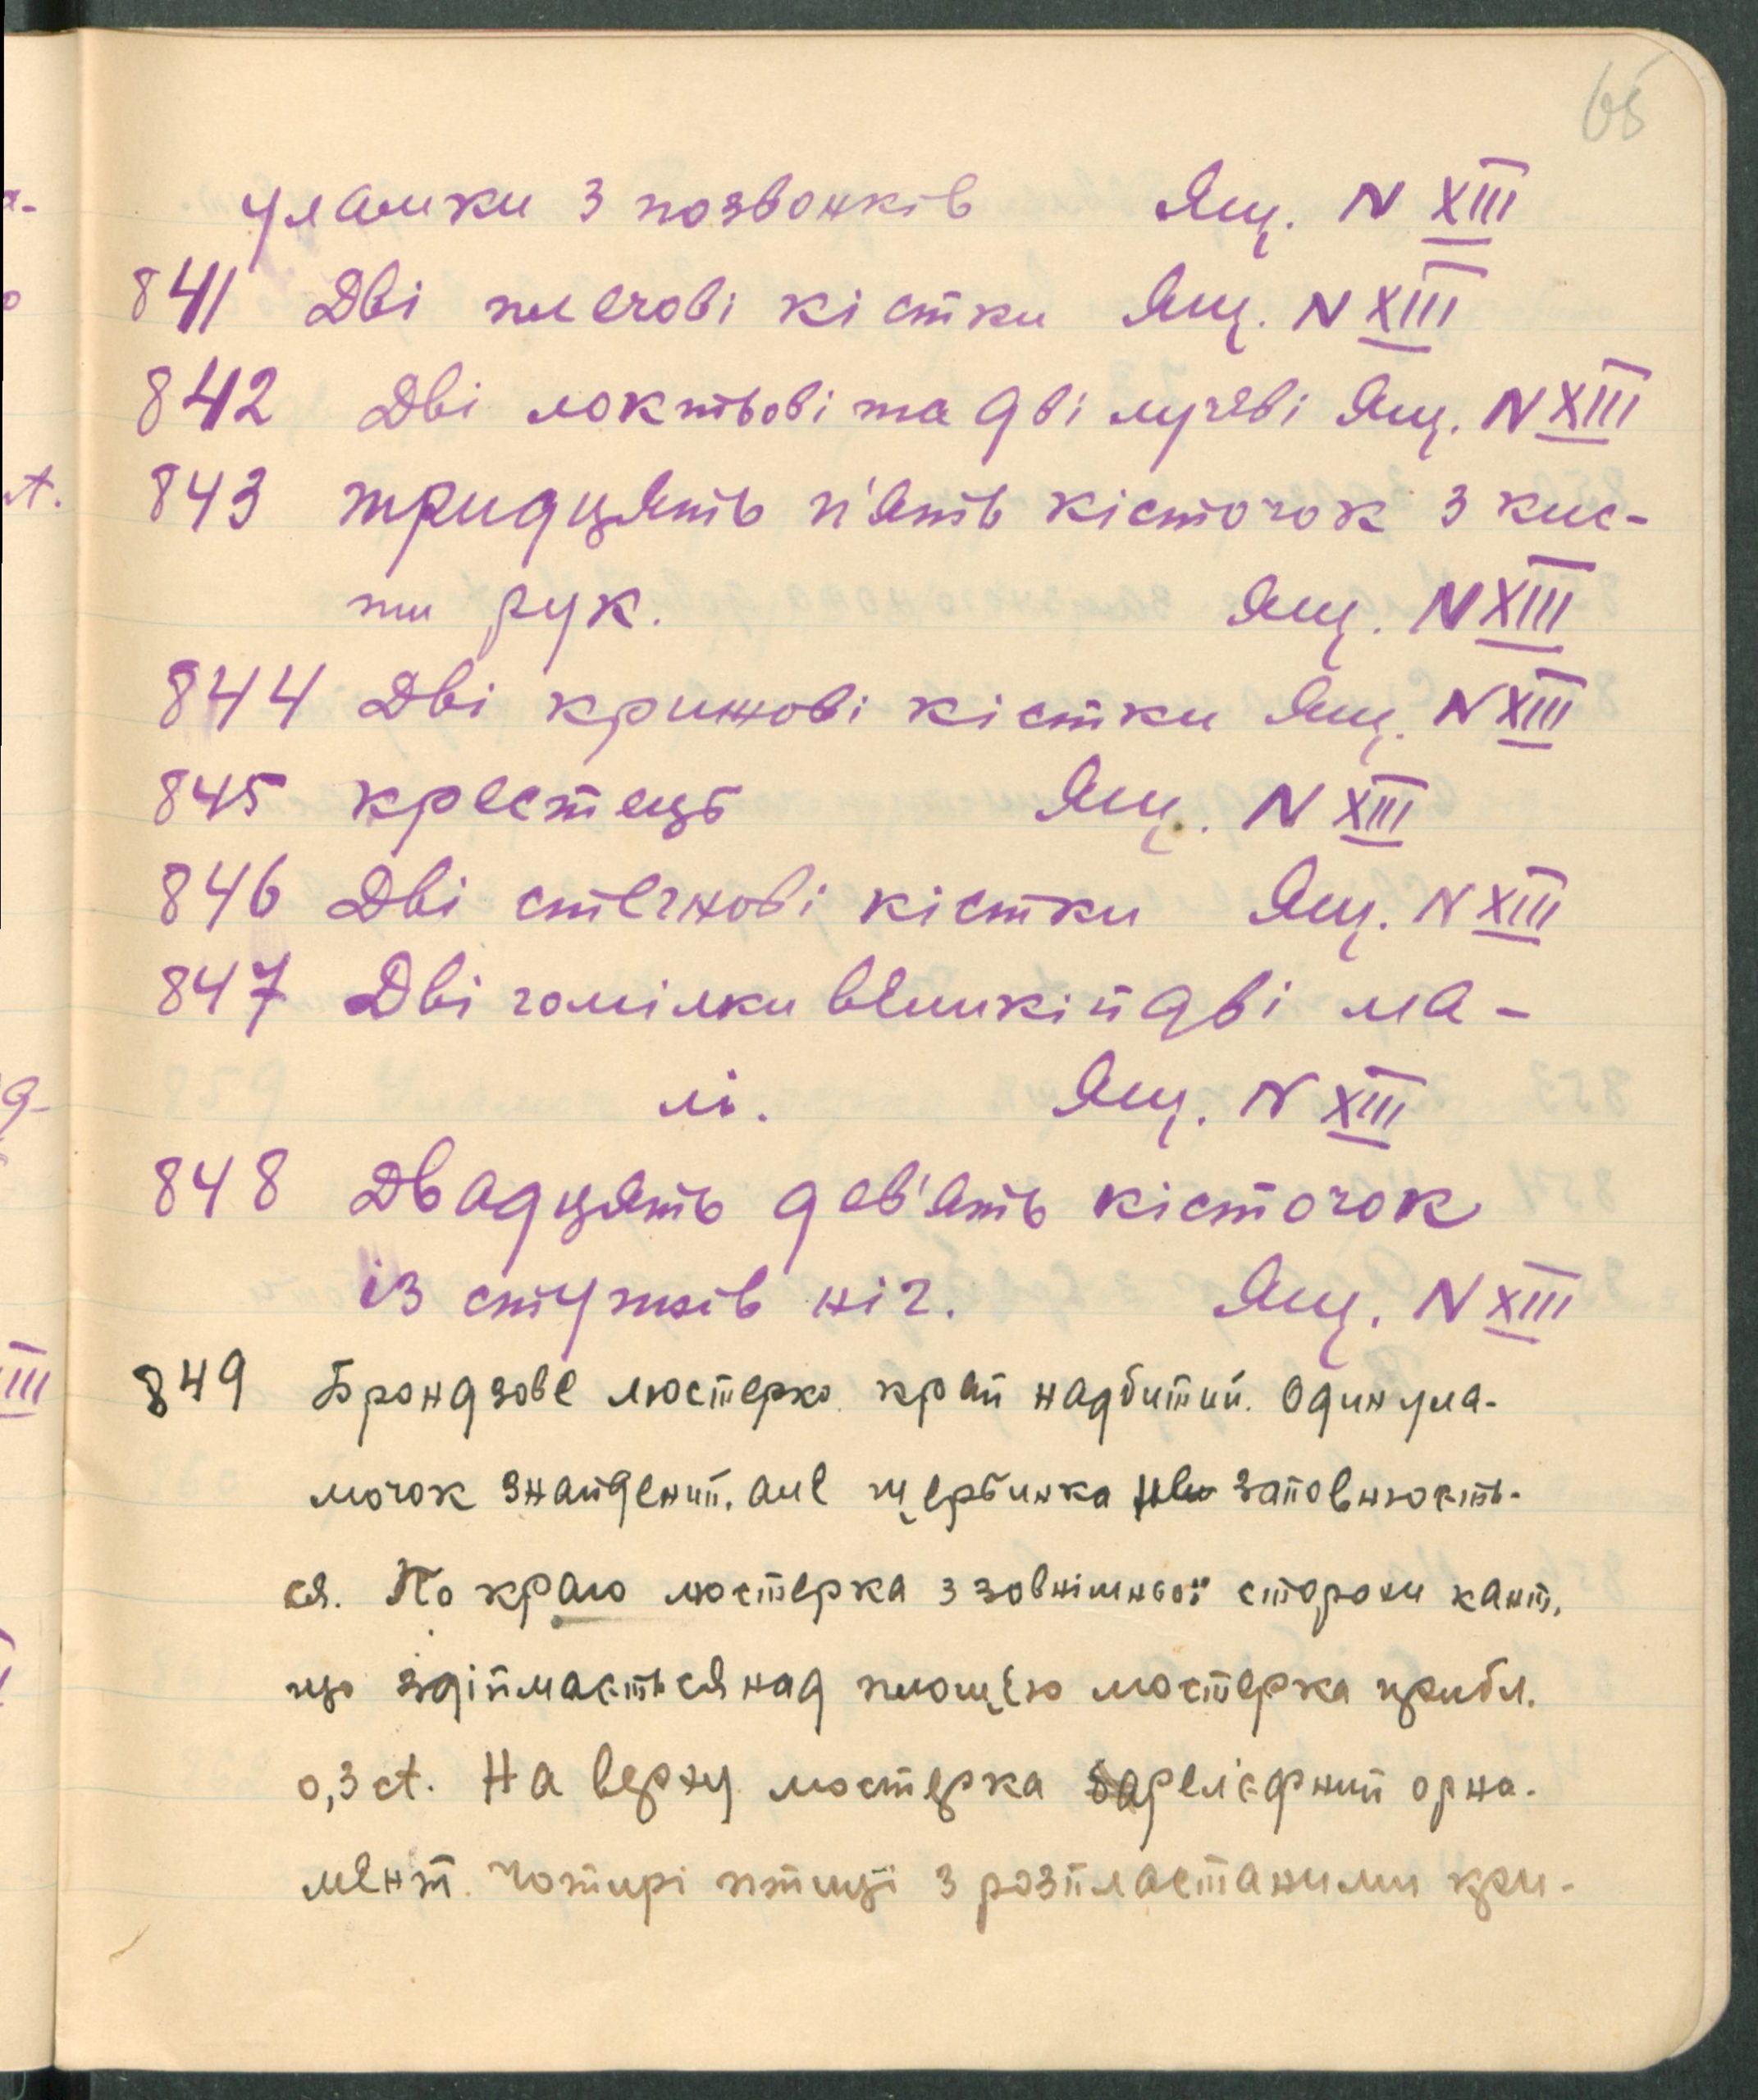 65
уламки з позвонків Ящ. N XIII
841 Дві плечові кістки Ящ. N XIII
842 Дві локтьові та дві лучеві Ящ. N XIII
843 тридцять п'ять кісточок з кис-
ти рук. Ящ. N XIII
844 Дві крижові кістки Ящ. N XIII
845 крестець Ящ. N XIII
846 Дві стегнові кістки Ящ. N XIII
847 Дві гомілки великі й дві ма-
лі. Ящ. N XIII
848 Двадцять дев'ять кісточок
із ступнів ніг. Ящ. N XIII
849 Бронзове люстерко край надбитий. Один ула-
мочок знайдений, але щербинка не заповнюєть-
ся. По краю люстерка з зовнішньої сторони кант,
що здіймається над площею люстерка прибл.
0,3 ct. На верху люстерка барелієфний орна-
мент. Чотирі птиці з розпластаними кри-